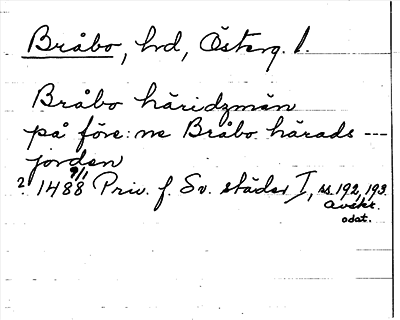 Bråbo, hrd, Österg. l.
Bråbo häridzmän
på före: ne Bråbo härads ---
jorden
? 1488 9/1 Priv. f. Sv. städer I, ss. 192, 193.
Avskr.
odat.